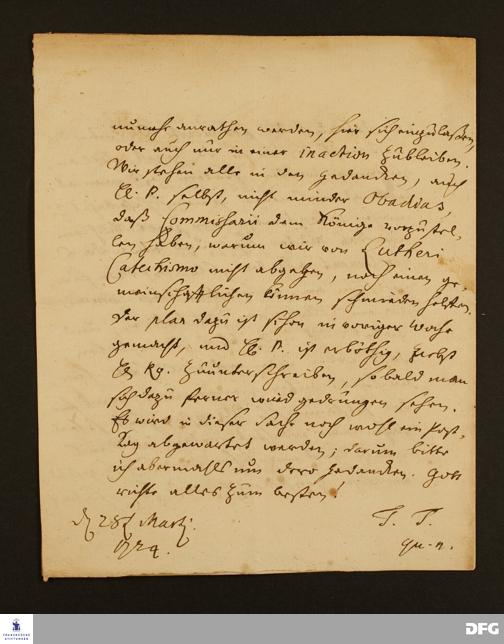 nunmehr anrathen werden, hier sich einzulaßen,
oder auch nur in einer inaction zu bleiben.
Wir stehen alle in den gedancken, auch
selbst, nicht minder Obadias,
daß Commissarii dem Könige vorzustel-
len haben, warum wir von Lutheri
Catechismo nicht abgehen, noch einen ge-
meinschafftlichen können schmieden helffen.
Der plan dazu ist schon in voriger Woche
gemacht, und P. ist erböthig, selbst
zu unterschreiben, sobald man
sich dazu ferner wird gedrungen sehen.
Es wird in dieser Sache noch wohl ein Post-
tag abgewartet werden; darum bitte
ich abermahls um dero gedancken. Gott
richte alles zum besten!
d. 28t Martj
1724.
T. T.
qu-n.
FRANCKESCHE
STIFTUNGEN
DFG